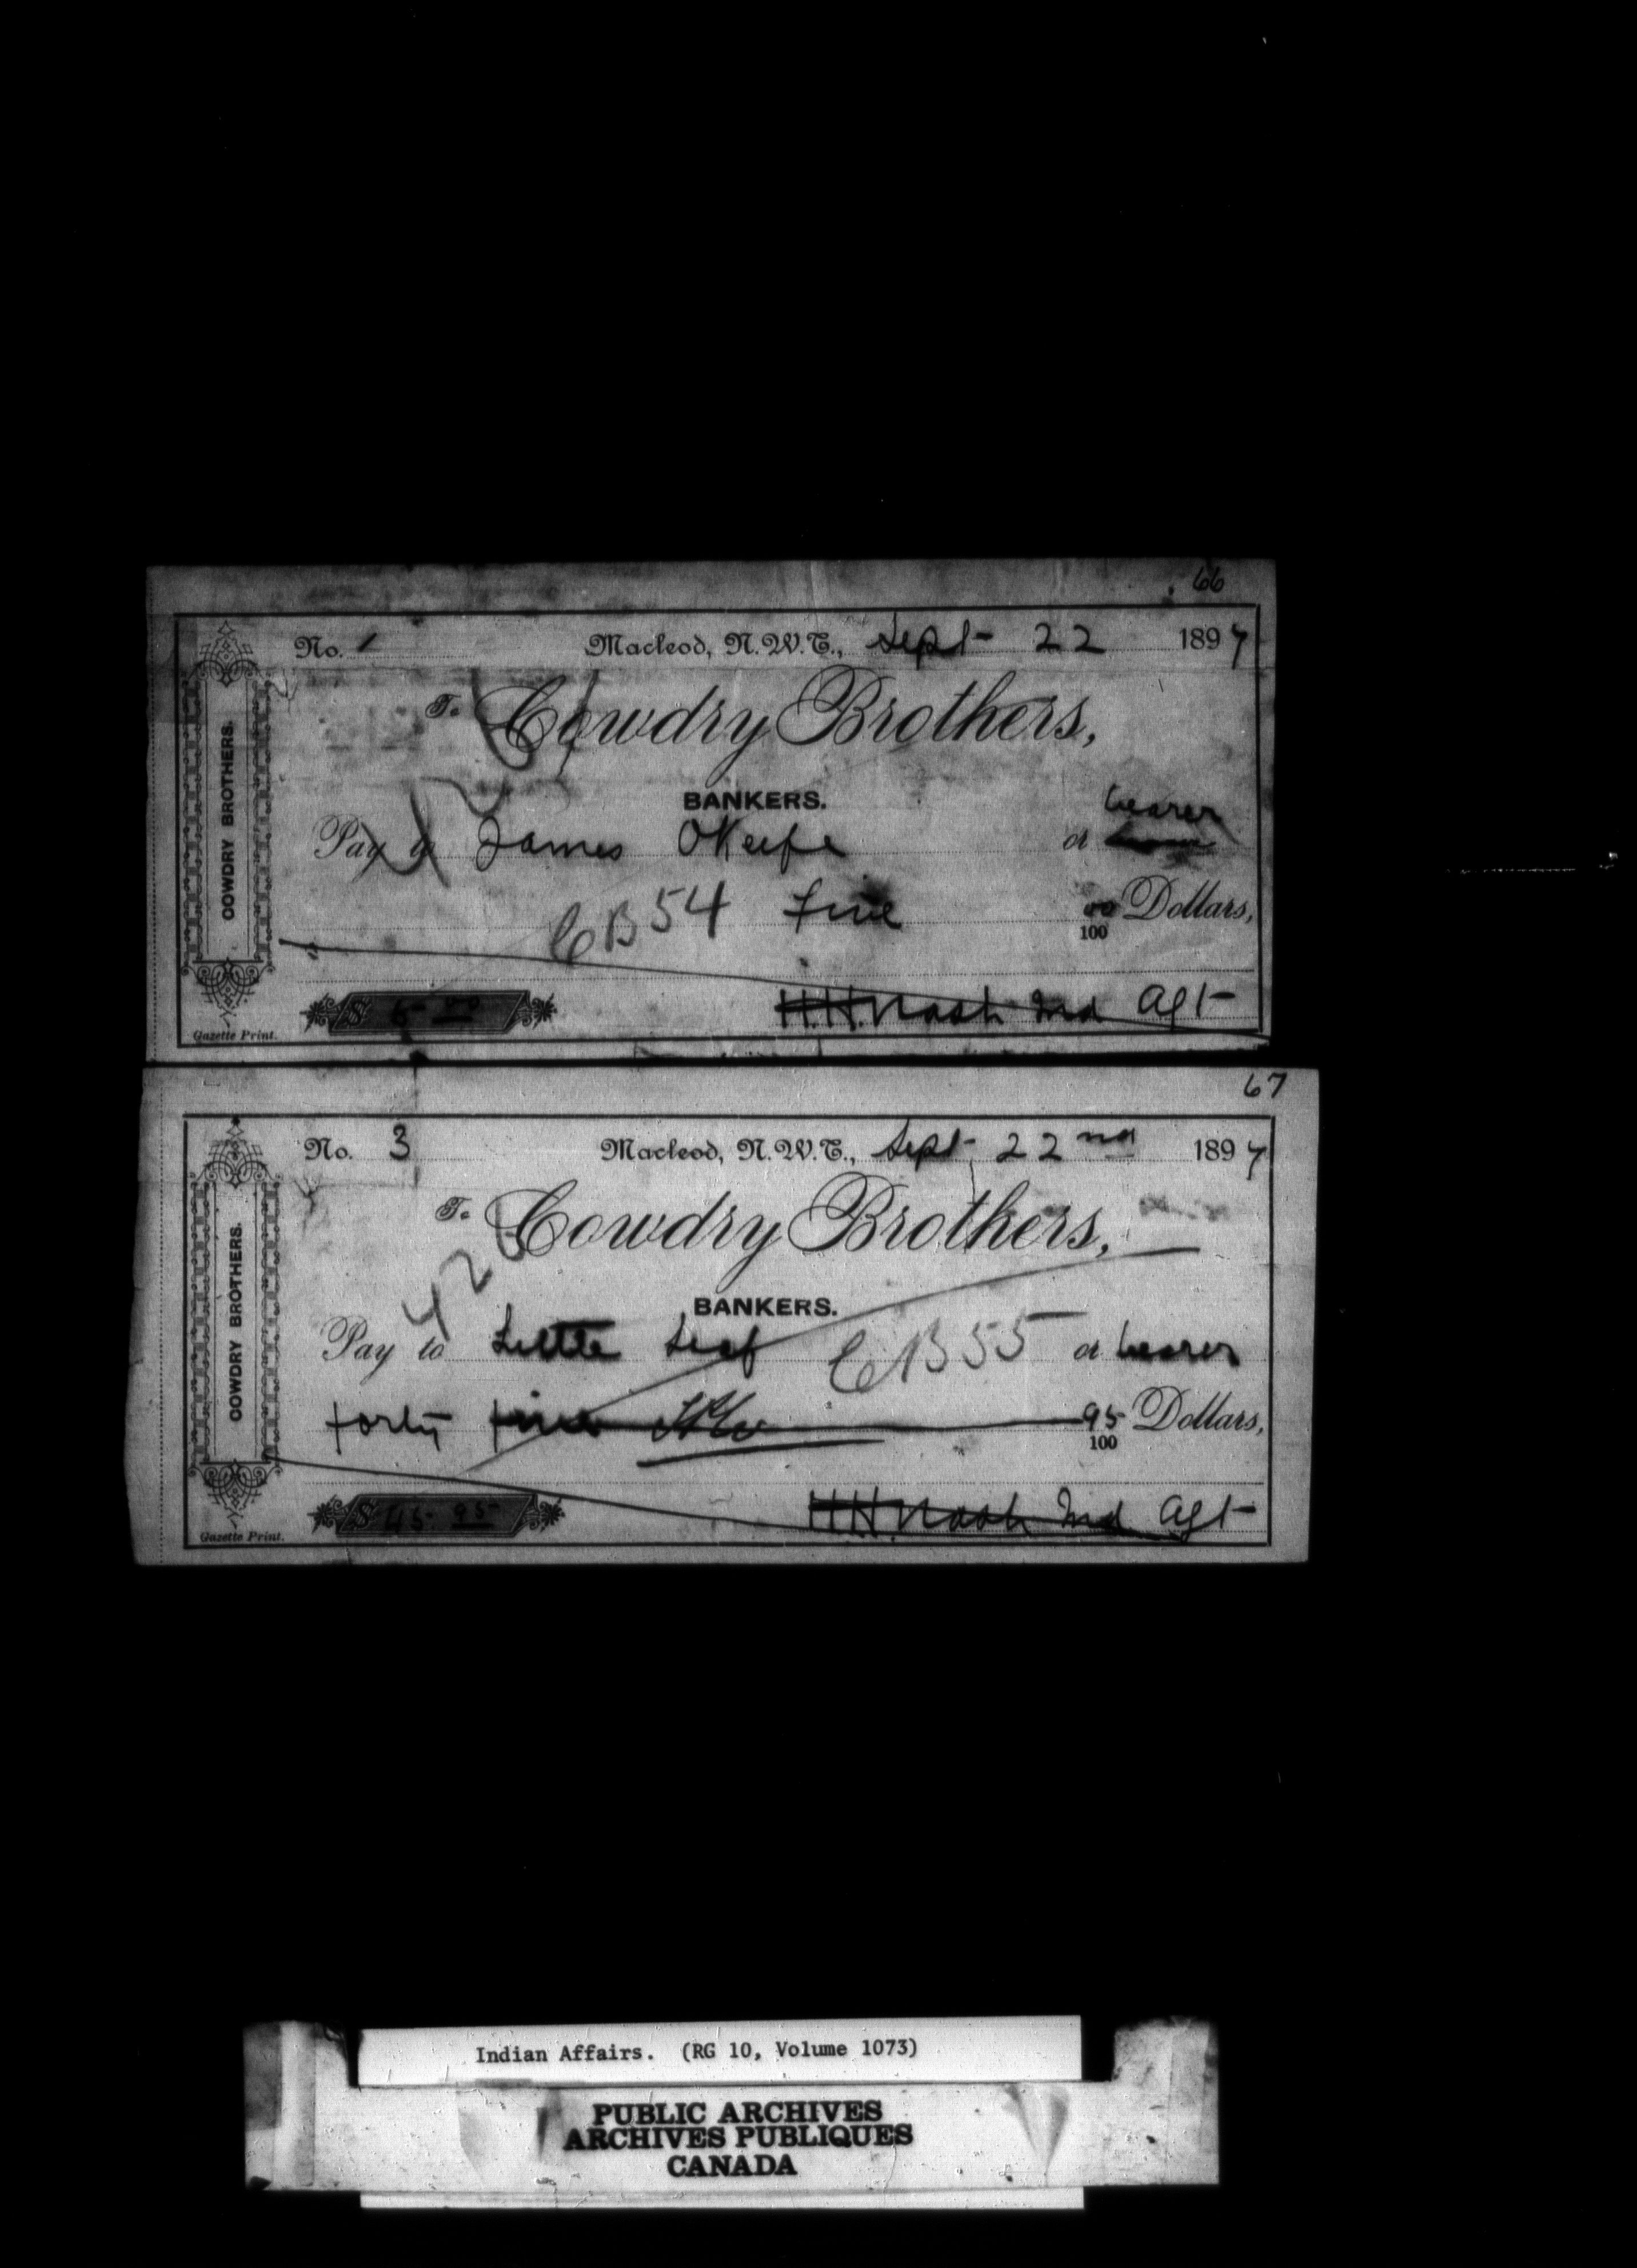 66
No. 1 Macleod, N.W.T., Sept 22 1897
To Cowdry Brothers,
BANKERS.
bearer
Pay to James OKeefe or
CB 54 five 00/100 Dollars,
$ 5 00
H.H. Nash Ind Agt
COWDRY BROTHERS.
Gazette Print.
67
No. 3 Macleod, N.W.T., Sept 22nd 1897
To Cowdry Brothers,
426
BANKERS.
Pay to Little Leaf CB 55 or bearer
forty five 95/100 Dollars,
$ 45 95
H.H. Nash Ind Agt
COWDRY BROTHERS.
Gazette Print.
Indian Affairs. (RG 10, Volume 1073)
PUBLIC ARCHIVES
ARCHIVES PUBLIQUES
CANADA